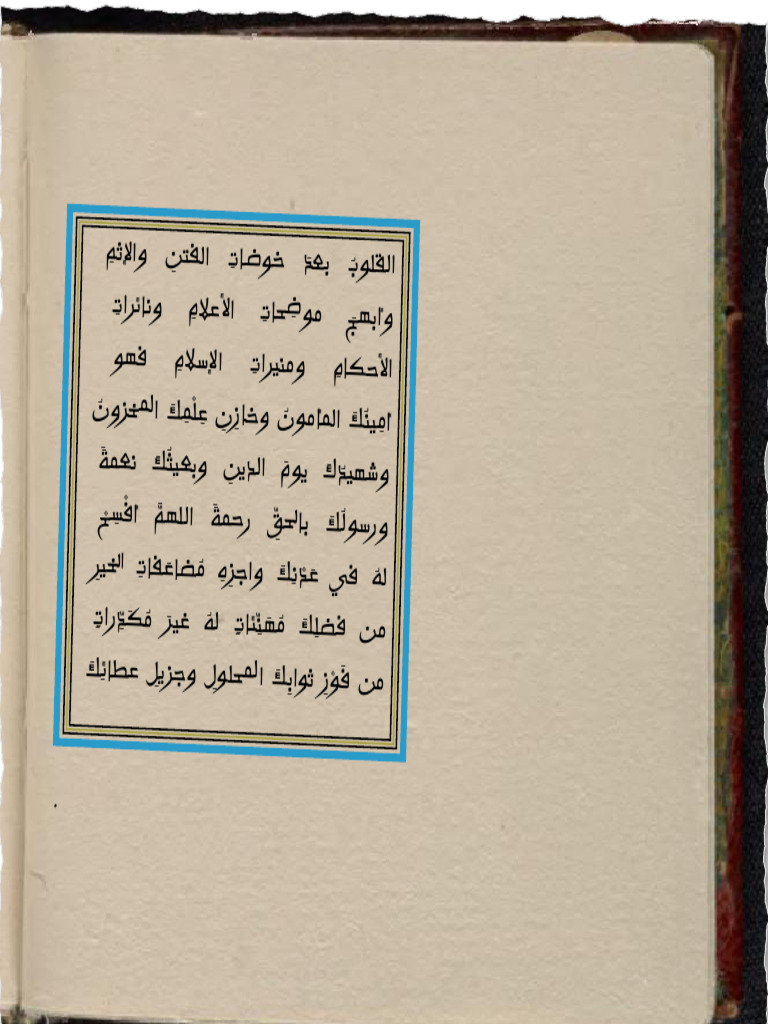 القلوبُ بعدَ خوضاتِ الفتنِ والإثمِ
وأبهجَ موضِحاتِ الأعلامِ ونائراتِ
الأحكامِ ومنيراتِ الإسلامِ فهو
أمِينُكَ المأمونُ وخازِنِ عِلْمِكَ المخزونُ
وشهيدُكَ يومَ الدينِ وبعيثُكَ نعمةً
ورسولُكَ بالحقِّ رحمةً اللهمَّ افْسِحْ
لهُ في عَدْنِكَ واجزِهِ مُضاعَفاتِ الخيرِ
من فضلِكَ مُهَنِّئاتٍ لهُ غيرَ مُكَدِّراتٍ
من فَوْزِ ثوابِكَ المحلولِ وجزيلِ عطائِكَ